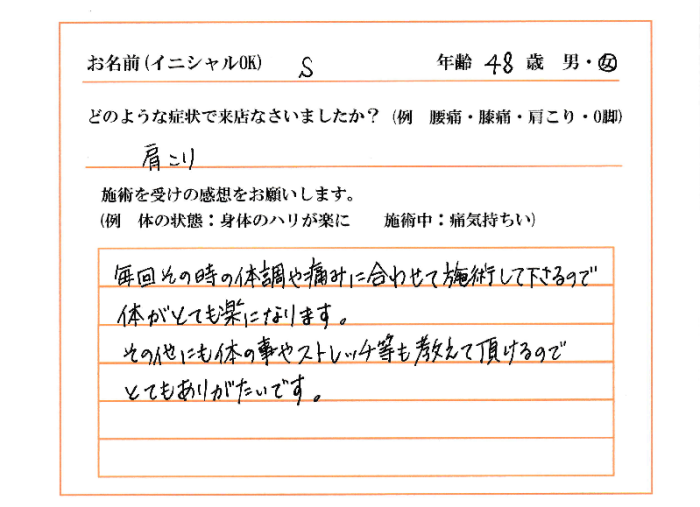 お名前(イニシャルOK) S 年齢 48 歳 男・女
どのような症状で来店なさいましたか？ (例 腰痛・膝痛・肩こり・O脚)
肩こり
施術を受けの感想をお願いします。
(例 体の状態：身体のハリが楽に 施術中：痛気持ちい)
毎回その時の体調や痛みに合わせて施術して下さるので
体がとても楽になります。
その他にも体の事やストレッチ等も教えて頂けるので
とてもありがたいです。